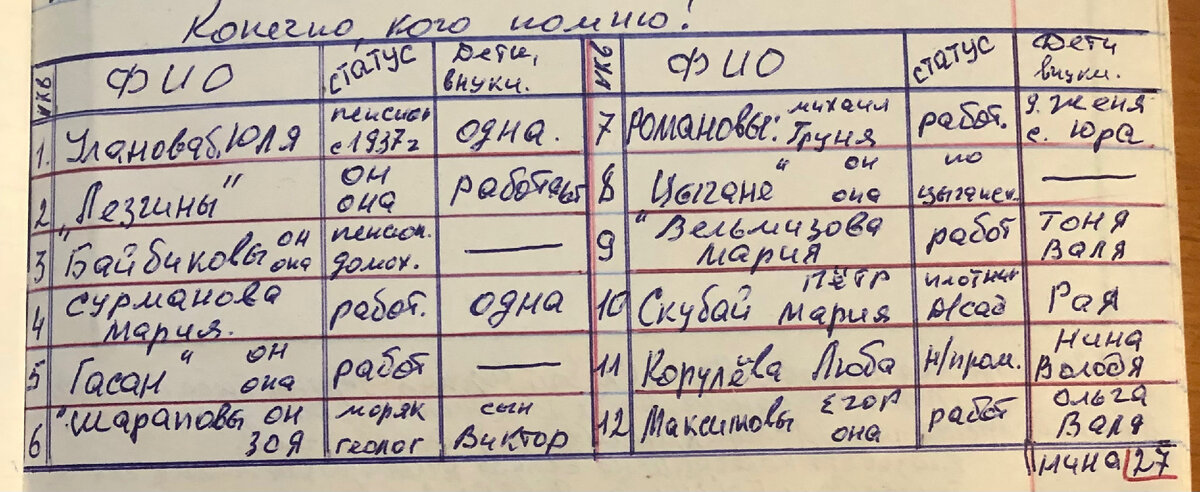 Конечно, кого помню!
№кв ФИО статус Дети, внуки.
1. Улановаб. Юля пенсион с 1937г одна.
2 "Лезгины" он она работают
3 "Байбиковы он она пенсион. домох. —
4 Сурманова Мария. работ. одна
5 Гасан " он она работ —
6 "Шараповы он Зоя моряк геолог сын Виктор
№кв ФИО статус Дети внуки.
7 Романовы: Михаил Груня работ. д. Женя с. Юра
8 Цыгане " он она по цыганск. —
9 "Вельмизова Мария работ Тоня Валя
10 Скубай Пётр Мария плотник д/сад Рая
11 Корулёва Люба н/пром. Нина Володя
12 Максимовы Егор она работ Ольга Валя
Нина 27